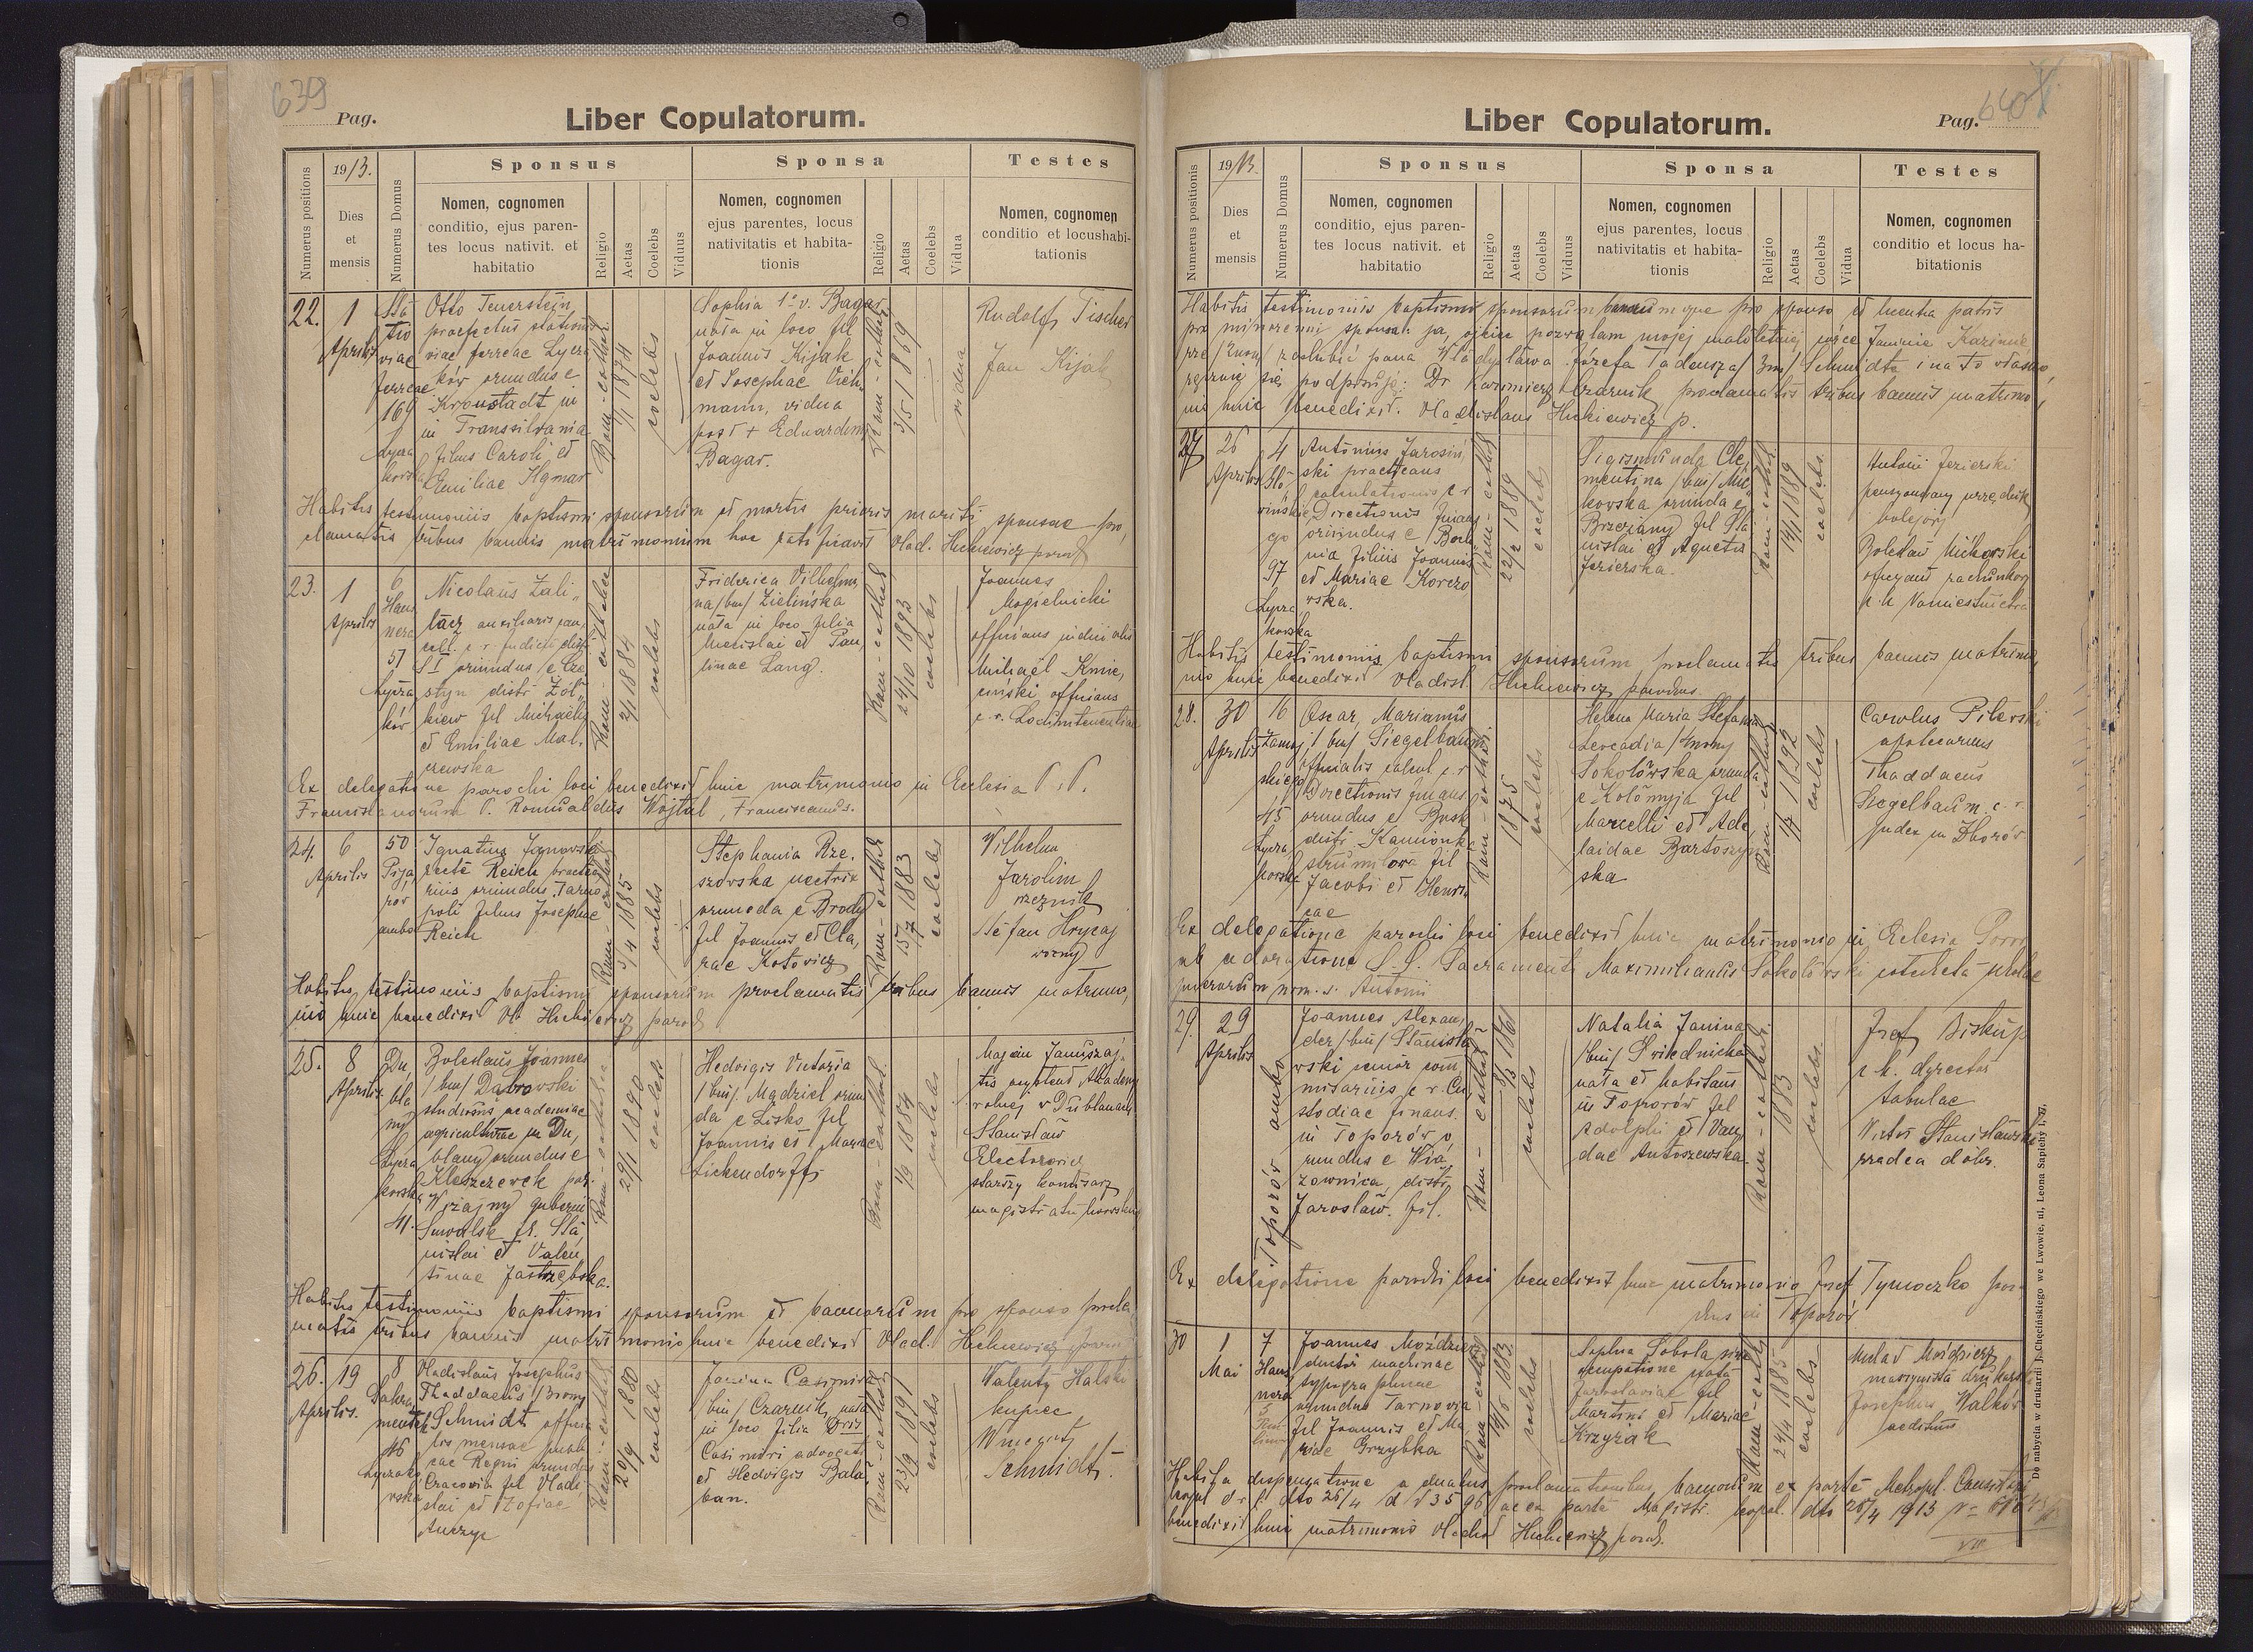 639
Pag.
Liber Copulatorum.
Numerus positionis
1913.
Dies
et
mensis
Numerus Domus
Sponsus
Nomen, cognomen
conditio, ejus paren-
tes locus nativit. et
habitatio
Religio
Aetas
Coelebs
Viduus
Sponsa
Nomen, cognomen
ejus parentes, locus
nativitatis et habita-
tionis
Religio
Aetas
Coelebs
Vidua
Testes
Nomen, cognomen
conditio et locus habi-
tationis
22.
1
Aprilis
Sta
tio
viae
ferreae
169
Otto
praefectus stationis
viae ferreae Lycza
ków oriundus e
Kronstadt in
in Transsilvania
filius Caroli et
Emiliae
Rom-cathol
1/1 1874
coelebs
Sophia 1º v. Bagar
nata in loco fil
Joannis Kijak
et Josephae Vieh
mann, vidua
post + Eduardum
Bagar.
Rom-cathol
3/5 1869
vidua
Rudolf Fischer
Jan Kijak
Habitis testimoniis baptismi sponsorum et mortis prioris mariti sponsae pro,
clamatis tribus bannis matrimonium hoc ratificavit Vlad. Hickiewicz paroch
23.
1
Aprilis
6
Haus
nera
51
Lycza
ków
Nicolaus Zali,
tacz auxiliaris can,
S I oriundus e
styn distr Żół,
kiew fil Michaëlis
et Emiliae Mal,
czewska
Rom-catholica
2/1 1884
coelebs
Friderica Vilhelmi,
na /bin/ Zielińska
nata in loco filia
Mecislai et Pau,
linae Lang.
Rom-cathol
24/10 1893
coelebs
Joannes
Mogielnicki
Michaël Kmie,
ciński officians
c. r. Locumtenentiae
Ex delegatione parochi loci benedixit huic matrimonio in Ecclesia P. P.
Franciscanorum P. Romualdus Wojtal, Franciscanus.
24.
6
Aprilis
50
Pija,
rów
ambo
Ignatius
recte Reich
oriundus Tarno
poli filius Josephae
Reich
Rom-cathol
3/4 1885
coelebs
Stephania Rze,
szowska
oriunda e Brody
fil Joannis et Cla,
rae Kotowicz
Rom-cathol
15/7 1883
coelebs
Wilhelm
Jarolim
rzeznik
Stefan Hrycaj
woźny
Habitis testimoniis baptismi sponsorum proclamatis tribus bannis matrimo,
nio huic benedixit Vl. Hickiewicz paroch
25.
8
Aprilis
Du,
bla
ny
Lycza
kowska
41.
Boleslaus Joannes
/bin/ Dabrowski
studiosus academiae
agriculturae in Du,
blany oriundus e
Kleszczewek
gubernii
Suwalsk f. Sta,
nislai et Valen
tinae Jastrzębska.
Rom-catholica
29/1 1890
coelebs
Hedvigis Victoria
/bin/ Madziel oriun
da e Lisko fil
Joannis et Mariae
Lickendorff
Rom-cathol.
1/9 1887
coelebs
Marjan Januszaj,
tis asystent Akademji
rolnej w Dublanach
Stanisław
Electorowicz
starszy komisarz
magistratu lwowskiego
Habitis testimoniis baptismi sponsorum et bannorum pro sponso procla
matis tribus bannis matrimonio huic benedixit Vlad. Hickiewicz
26.
19
Aprilis.
8
46
Lyczako
wska
Vladislaus Josephus
Thaddaeus /3nom/
Schmidt officia
lis mensae
Regni oriundus
Cracovia fil Vladi,
slai et Zofiae
Rom-cathol
20/9 1880
coelebs
Janina Casimira
/bin/ Czarnik nata
in loco filia Dris
Casimiri advocati
et Hedvigis Bala
ban.
Rom-cathol
23/9 1891
coelebs
Walenty Halski
kupiec
Wincenty
Schmidt.
640
Pag.
Liber Copulatorum.
Numerus positionis
1913.
Dies
et
mensis
Numerus Domus
Sponsus
Nomen, cognomen
conditio, ejus paren-
tes locus nativit. et
habitatio
Religio
Aetas
Coelebs
Viduus
Sponsa
Nomen, cognomen
ejus parentes, locus
nativitatis et habita-
tionis
Religio
Aetas
Coelebs
Vidua
Testes
Nomen, cognomen
conditio et locus ha-
bitationis
Habitis testimoniis baptismi sponsorum pro sponso et licentia patris
pro minorenni sponsa: ja, ojciec pozwalam mojej małoletniej córce Janinie Kazimie,
rze /2nom/ zaślubić pana Władysława Józefa Tadeusza /3im/ Schmidta i na to własno,
ręcznie się podpisuję: Dr Kazimierz Czarnik, proclamatis tribus bannis matrimo,
nio huic benedixit. Vladislaus Hickiewicz p.
27
26
Aprilis
4
go
97
Lycza
kowska
Antonius Jarosiń
ski practicans
calculationis c r
Directionis finan
oriundus e Boch
nia filius Joannis
et Mariae Korczo
wska.
Rom-cathol
22/2 1889
coelebs
Sigismunda Cle,
mentina /bin/ Mic
kowska oriunda e
Brzezany fil Sta
nislai et Agnetis
Jezierska.
Rom-cathol
14/1 1889
coelebs
Antoni Jezierski
pensyonowany urzędnik
kolejowy
Bolesław
oficyant rachunkowy
c. k. Namiestnictwa
Habitis testimoniis baptismi sponsorum, proclamatis tribus bannis matrimo,
nio huic benedixit Vladisl Hickiewicz parochus.
28.
30
Aprilis
16
Zamoj
skiego
45
Lycza
kowska
Oscar, Marianus
/bin/ Siegelbaum
officialis calcul c. r
Directionis finans
oriundus e Busk
distr. Kamionka
strumilowa fil
Jacobi et Henri
cae
Rom-cathol.
1875
coelebs
Helena Maria Stefania
Leocadia /4nom/
Sokołowska oriunda
e Kołomyja fil
Marcelli et Ade,
laidae Bartoszyń
ska
Rom-cathol
1892
coelebs
Carolus Pilerski
apotecarius
Thaddaeus
Siegelbaum c. r
judex in Zborów
Ex delegatione parochi loci benedixit huic matrimonio in Ecclesia
ab adoratione S.S. Sacramenti Maximilianus Sokołowski
puerorum nom. s. Antonii
29.
29
Aprilis
Toporów ambo
Joannes Alexan,
der /bin/ Stanisła
wski senior com
misarius c. r. Cu
stodiae finans.
in Toporów o,
riundus e Wią
zownica, distr
Jarosław. fil.
Rom-cathol
1861
coelebs
Natalia Janina
/bin/ Swiednicka
nata et habitans
in Toporów fil
Adolphi et Van,
dae Antoszewska
Rom-cathol.
1883
coelebs.
Josef Biskup
c. k. dyrector
tabulae
Victor Stanisławski
rządca dóbr.
Ex delegatione parochi loci benedixit huic matrimonio Josef Tymoczko paro
chus in Toporów
30
1
Mai
7
Haus
nera
5
Joannes Moździerz
ductor machinae
typographicae
oriundus Tarnovia
fil Joannis et Ma,
riae Grzybka
Rom-cathol
14/6 1883
coelebs
Sophia Sobola sine
occupatione nata
Jaroslaviae fil
Martini et Mariae
Krzyżak
Rom-cathol
24/4 1885
coelebs
Moździerz
maszynista drukarski
Josephus Walków
aedituus
Habita dispensatione a duabus proclamationibus bannorum ex parte Metropol. Consistorii
leopol d. r. l. dto 26/4 N 3596 ac ex parte Magistr. leopol. dto 26/4 1913
benedixit huic matrimonio Vladisl Hickiewicz paroch.
Do nabycia w drukarni J. Chęcińskiego we Lwowie, ul. Leona Sapiehy l. 77.